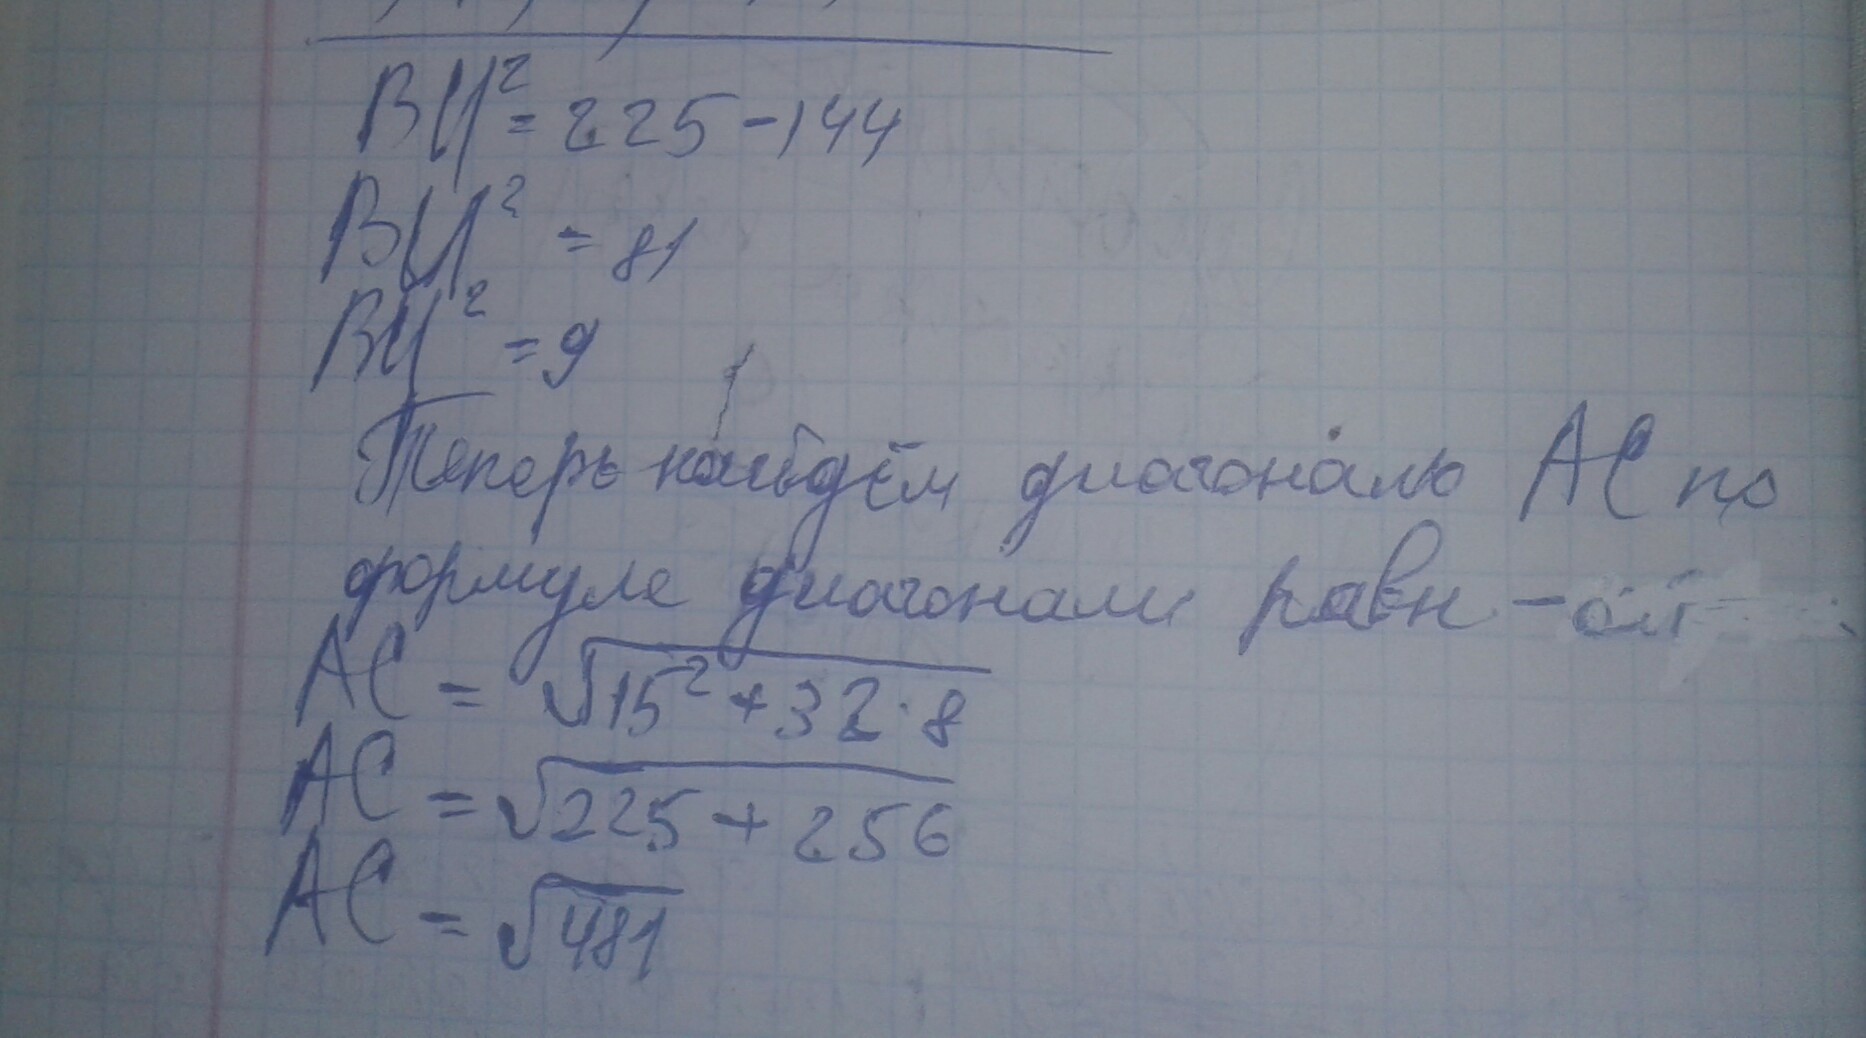 ВЦ² = 225 - 144
ВЦ² = 81
ВЦ² = 9
Теперь найдём диагональ АС по
формуле диагонали равн -
АС = √15² + 32 · 8
АС = √225 + 256
АС = √481